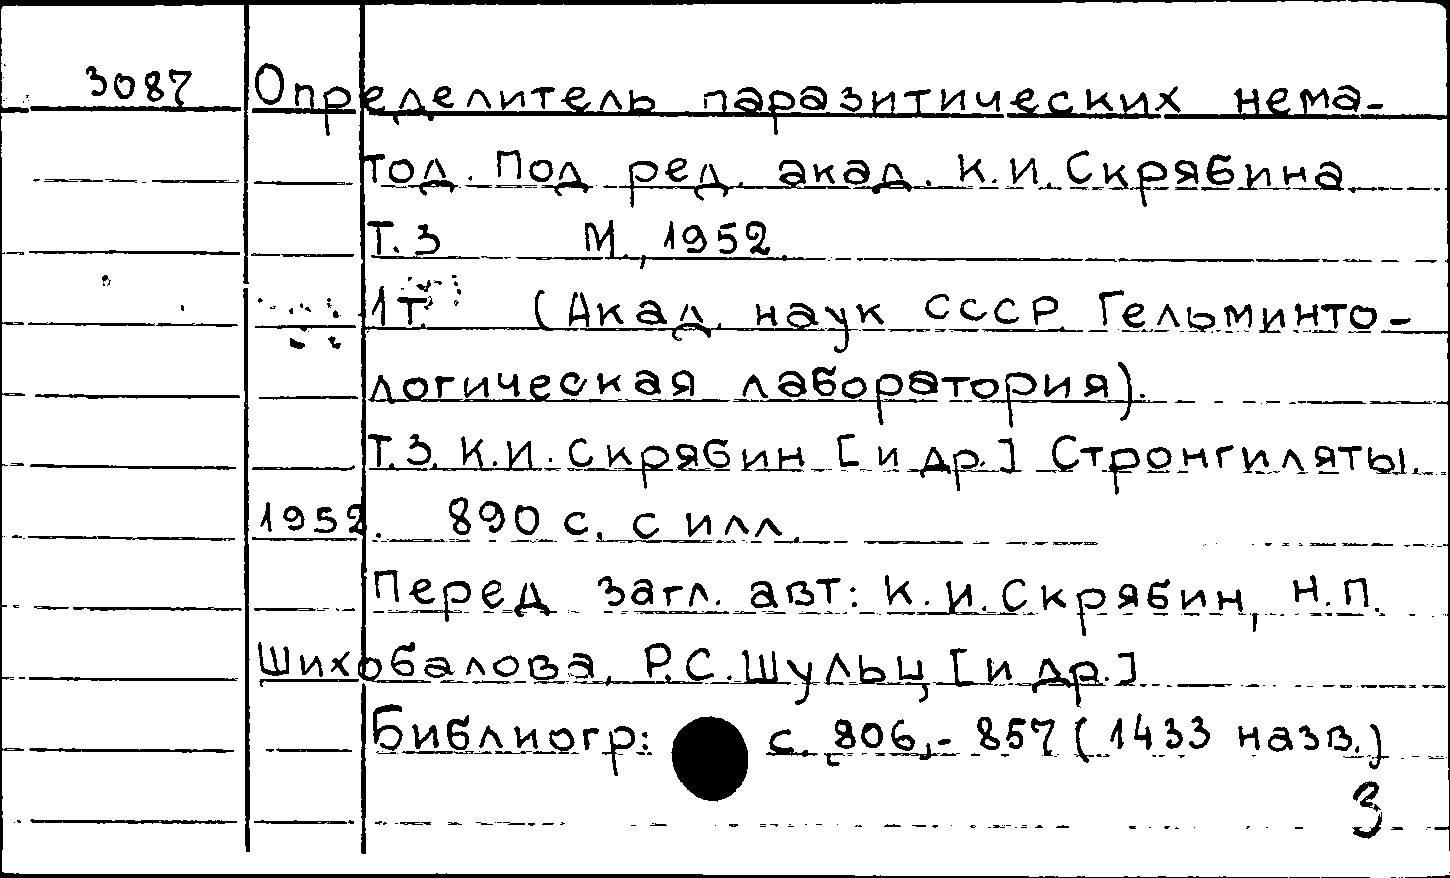 3087 Определитель паразитических нема-
тод. Под ред. акад. К.И. Скрябина.
Т. 3 М., 1952.
1 т. (Акад. наук СССР. Гельминто-
логическая лаборатория).
Т. 3. К.И. Скрябин [и др.] Стронгиляты.
1952. 890 с. с илл.
Перед загл. авт: К.И. Скрябин, Н.П.
Шихобалова, Р.С. Шульц [и др.]
Библиогр: с. 806,-857 (1433 назв.)
3